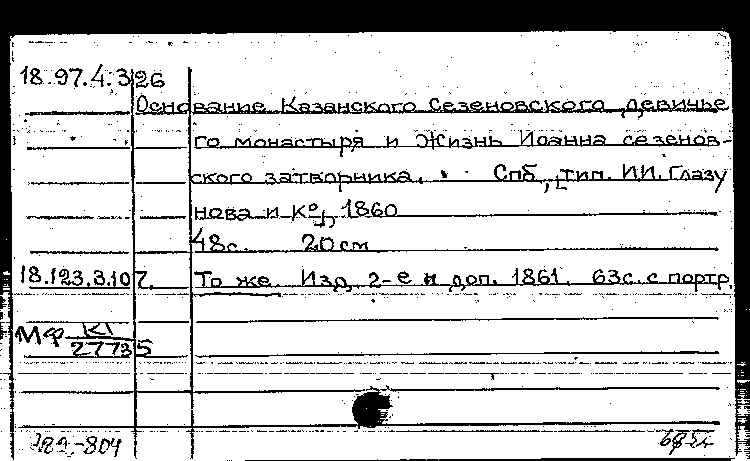 18.97.4.326
Основание Казанского Сезеновского девичье
го монастыря и Жизнь Иоанна сезенов-
ского затворника. Спб, тип. И.И. Глазу
нова и К°, 1860
48с. 20см
18.123.3.107. То же. Изд. 2-е и доп. 1861. 63с. с портр.
МФ К1
27735
-804